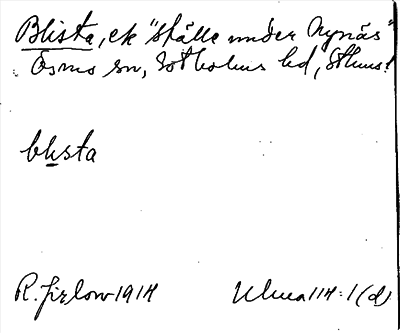 Blista, ek "ställe under Nynäs"
Ösmo sn, Sotholms hd, Sthms l
blista
R. Jirlow 1914 Ulma 114:1 (d)